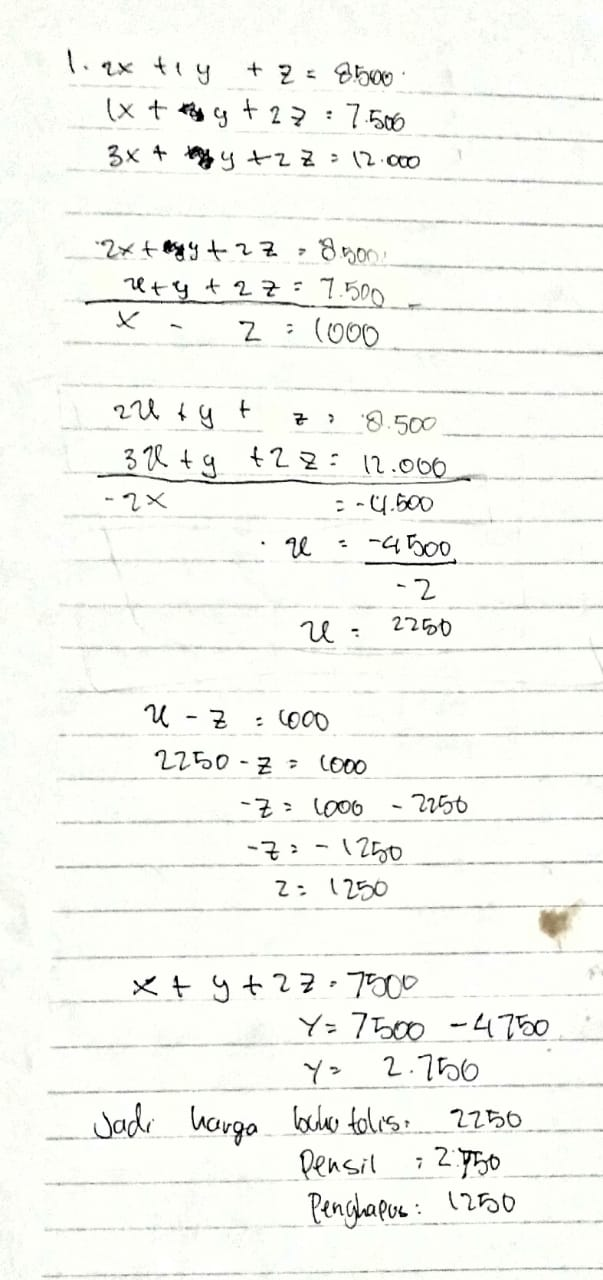 1. 2x + 1y + z = 8.500
1x + y + 2z = 7.500
3x + y + 2z = 12.000
2x + y + 2z = 8.500
x + y + 2z = 7.500 -
x - z = 1000
2x + y + z = 8.500
3x + y + 2z = 12.000
-2x = -4.500
x = -4500
-2
x = 2250
x - z = 1000
2250 - z = 1000
-z = 1000 - 2250
-z = -1250
z = 1250
x + y + 2z = 7500
Y = 7500 - 4750
Y = 2.750
Jadi harga buku tulis: 2250
Pensil : 2.750
Penghapus : 1250